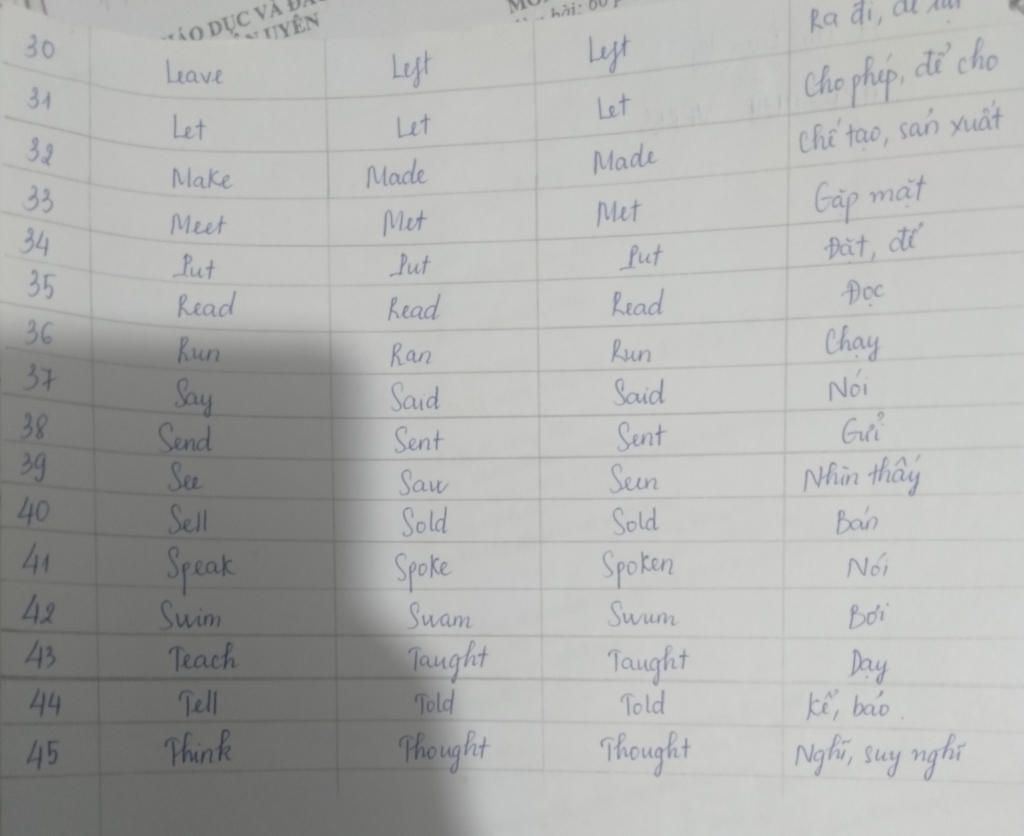 ÁO DỤC VÀ ĐÀ
UYÊN
bài: 60
30 Leave Left Left Ra đi, để lại
31 Let Let Let Cho phép, để cho
32 Make Made Made Chế tạo, sản xuất
33 Meet Met Met Gặp mặt
34 Put Put Put Đặt, để
35 Read Read Read Đọc
36 Run Ran Run Chạy
37 Say Said Said Nói
38 Send Sent Sent Gửi
39 See Saw Seen Nhìn thấy
40 Sell Sold Sold Bán
41 Speak Spoke Spoken Nói
42 Swim Swam Swum Bơi
43 Teach Taught Taught Dạy
44 Tell Told Told Kể, báo.
45 Think Thought Thought Nghĩ, suy nghĩ